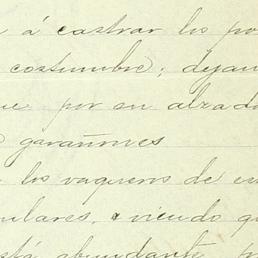 á castrar los po
costumbre; dejan
que por su alzada
garañones
los vaqueros de en
ulares, & viendo qu
está abundante, p